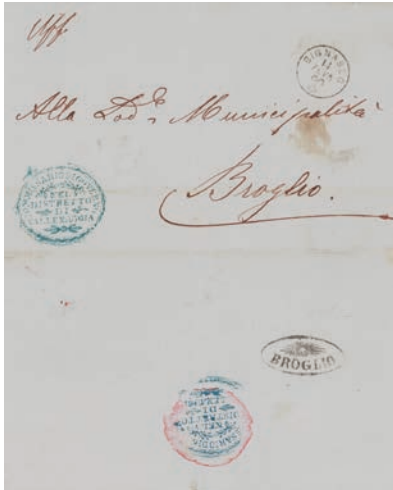 Uff.
BIGNASCO
11
Alla Lod.e Municipalità
Broglio.
COMMISSARIO DI GOVERNO
PEL
DISTRETTO
DI
VALLEMAGGIA
BROGLIO
PEL
DISTRETTO
DI